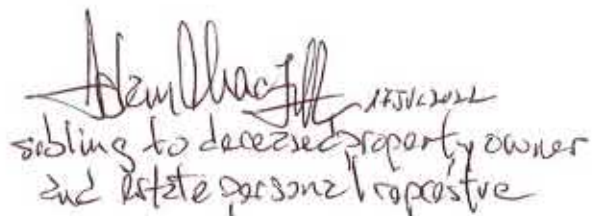 Adam 17JUL2022
sibling to deceased property owner
and estate personal represtve